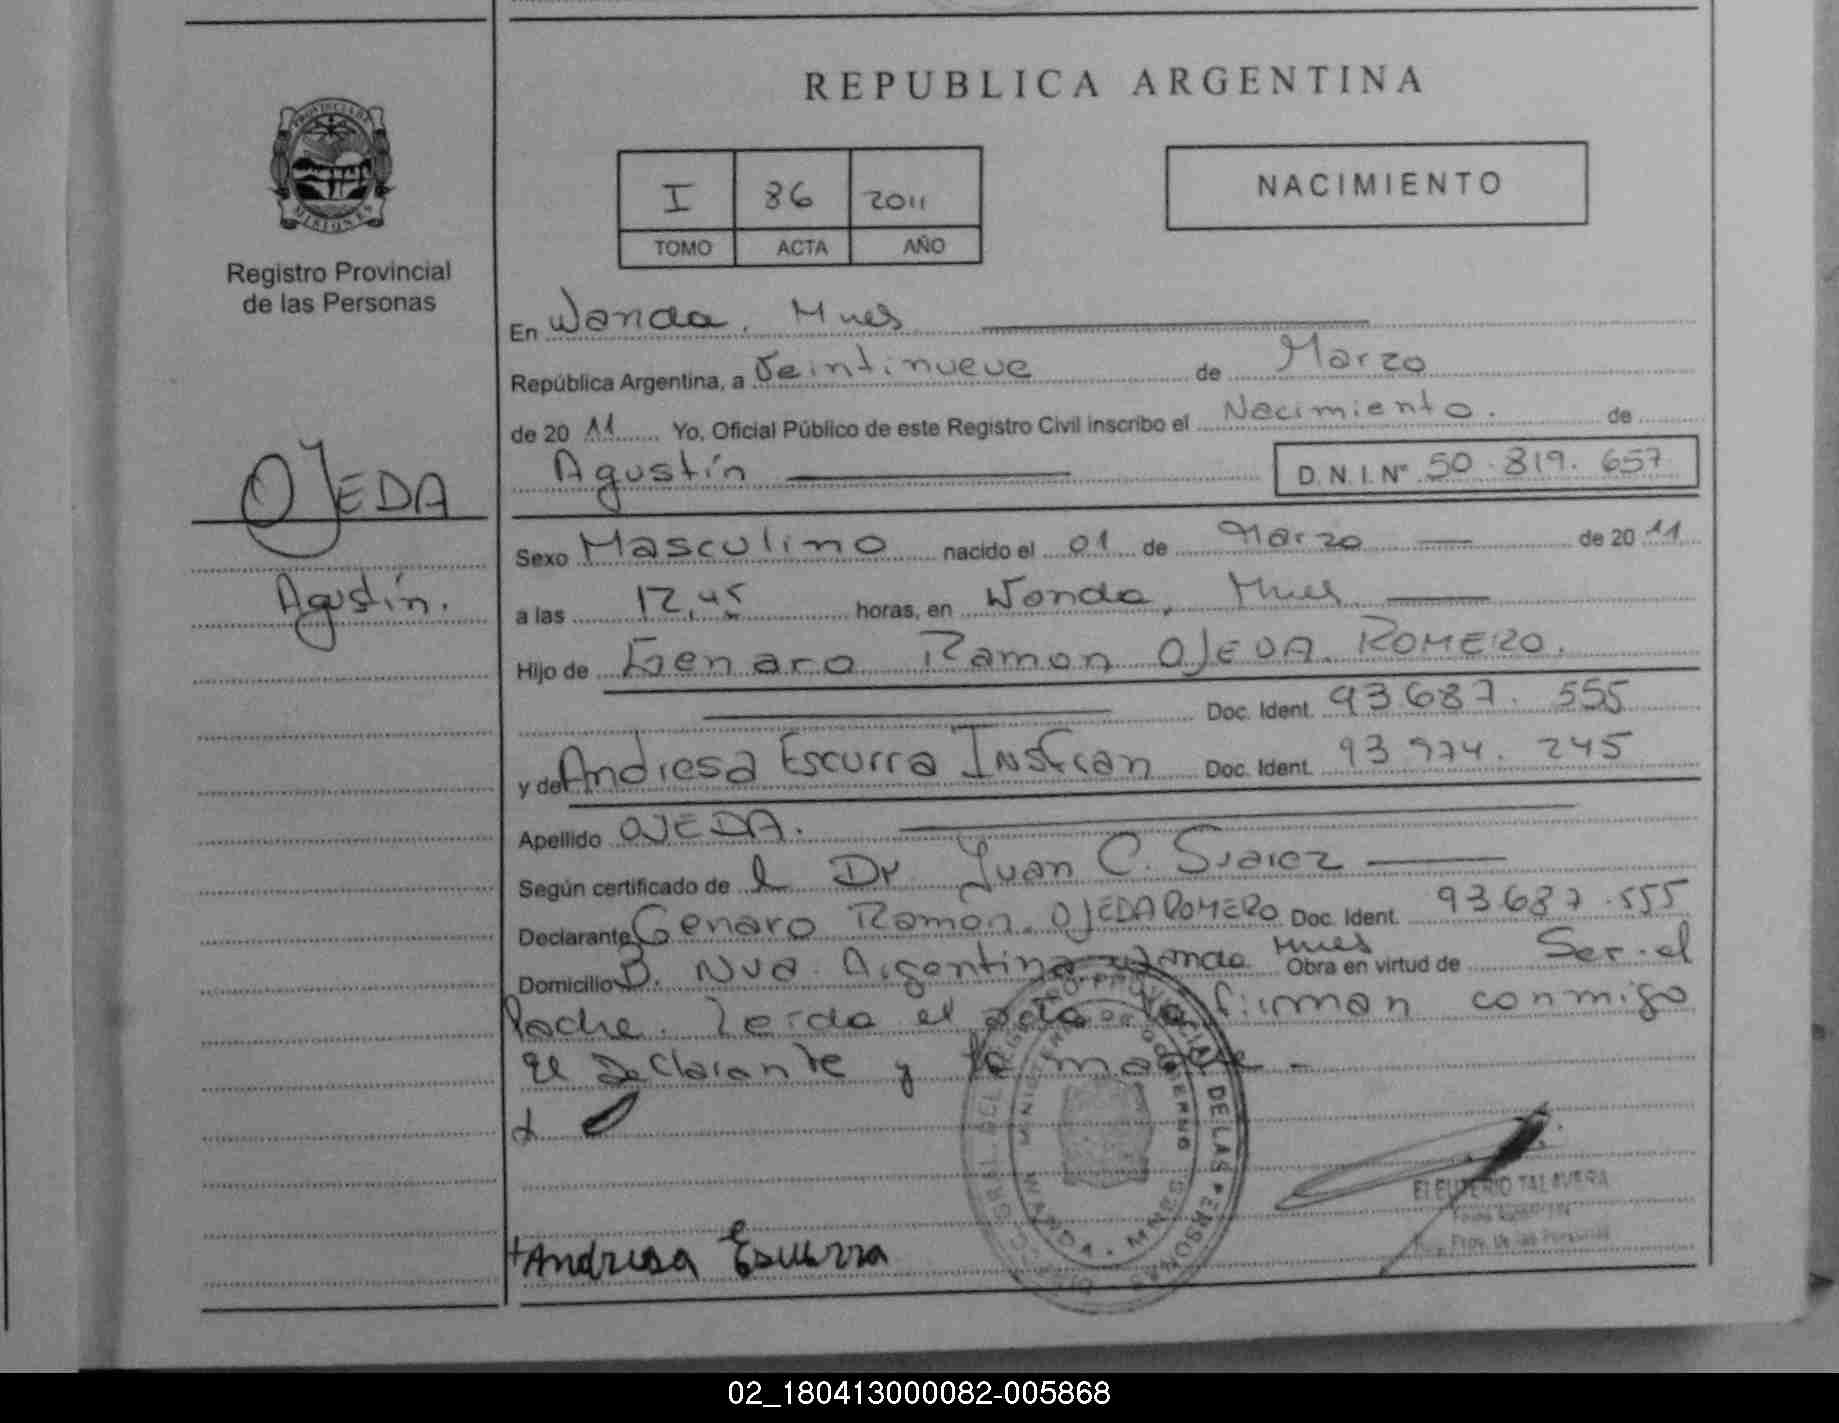 REPUBLICA ARGENTINA
PROVINCIA DE
MISIONES
Registro Provincial
de las Personas
I 86 2011
TOMO ACTA AÑO
NACIMIENTO
En Wanda, Mnes
República Argentina, a Veintinueve de Marzo
de 2011 Yo, Oficial Público de este Registro Civil inscribo el Nacimiento. de
Agustín D.N.I.Nº 50.819.657
OJEDA
Agustín.
Sexo Masculino nacido el 01 de Marzo de 2011
a las 12,45 horas, en Wanda, Mnes
Hijo de Genaro Ramon OJEDA ROMERO.
Doc. Ident. 93.687.555
y de Andresa Escurra Insfran Doc. Ident. 93 974.245
Apellido OJEDA.
Según certificado de l Dr Juan C. Suarez
Declarante Genaro Ramon OJEDA ROMERO Doc. Ident. 93.687.555
Domicilio B. Nva. Argentina Wanda Mnes Obra en virtud de Ser el
Padre. Leida el acta la firman conmigo
el Declarante y la madre -
ELEUTERIO TALAVERA
Reg. Prov. de las Personas
+Andresa Escurra
02_180413000082-005868